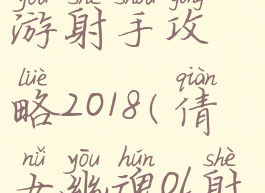 yóu shè shǒu gōng
游射手攻
lüè qiàn
略2018(倩
nǚ yōu hún shè
女幽魂OL射